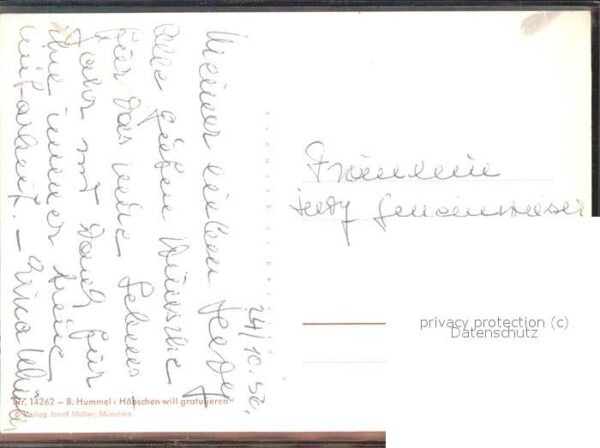 24/10.56.
Meiner lieben Hedy
alle guten Wünsche
für das neue Lebens
Jahr mit Dank für
ihre immer treue
mitarbeit. –
Fräulein
Hedy
Nr. 14262 – B. Hummel: Hänschen will gratulieren
© Verlag Josef Müller, München
privacy protection (c)
Datenschutz